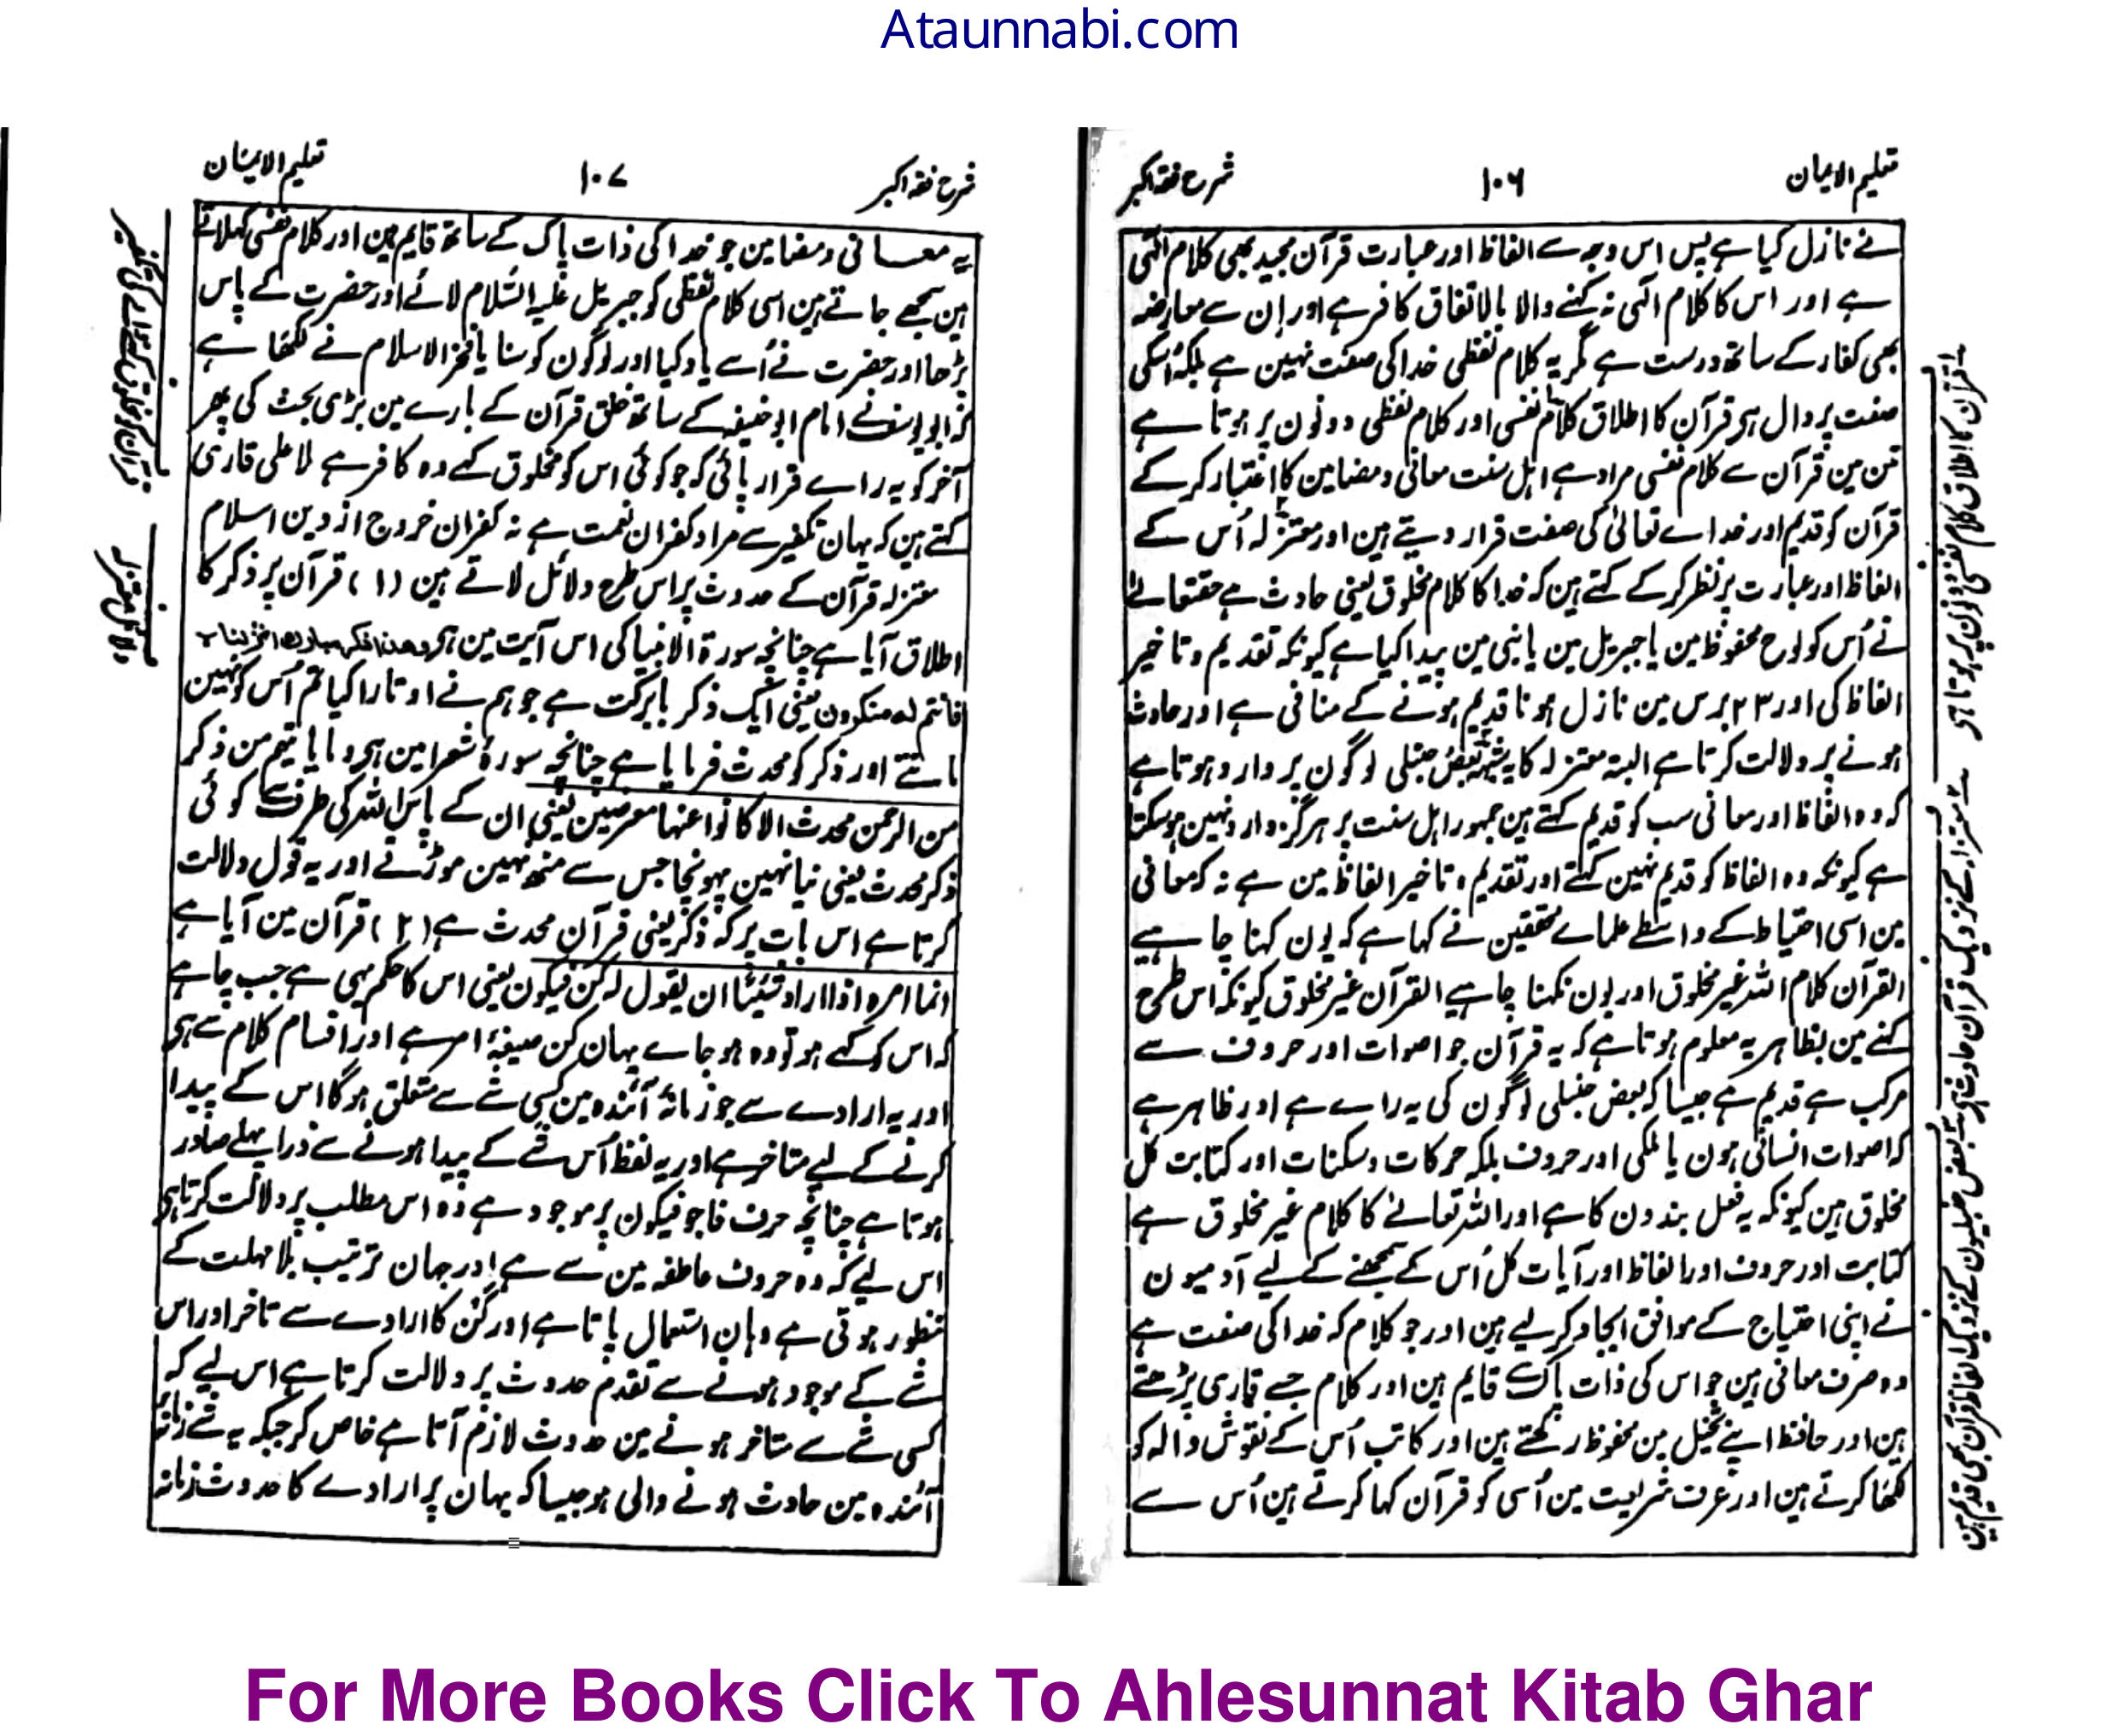 Ataunnabi.com
تعلیم الایمان
۱۰۶
شرح فقہ اکبر
نے نازل کیا ہے پس اس وجہ سے الفاظ اور عبارت قرآن مجید بھی کلام الٰہی
ہے اور اس کا کلام الٰہی نہ کہنے والا بالاتفاق کافر ہے اور اِن سے معارضہ
بھی کفار کے ساتھ درست ہے مگر یہ کلام لفظی خدا کی صفت نہین ہے بلکہ اُسکی
صفت پر دال ہی قرآن کا اطلاق کلام نفسی اور کلام لفظی دونون پر ہوتا ہے
متن مین قرآن سے کلام نفسی مراد ہے اہل سنت معانی و مضامین کا اعتبار کرکے
قرآن کو قدیم اور خداے تعالیٰ کی صفت قرار دیتے ہین اور معتزلہ اُس کے
الفاظ اور عبارت پر نظر کرکے کہتے ہین کہ خدا کا کلام مخلوق یعنی حادث ہے حقتعالےٰ
نے اُس کو لوح محفوظ مین یا جبریل مین یا نبی مین پیدا کیا ہے کیونکہ تقدیم و تاخیر
الفاظ کی اور ۲۳ برس مین نازل ہونا قدیم ہونے کے منافی ہے اور حادث
ہونے پر دلالت کرتا ہے البتہ معتزلہ کا یہ شبہہ بعض حنبلی لوگون پر وارد ہوتا ہے
کہ وہ الفاظ اور معانی سب کو قدیم کہتے ہین جمہور اہل سنت پر ہرگز وارد نہین ہوسکتا
ہے کیونکہ وہ الفاظ کو قدیم نہین کہتے اور تقدیم و تاخیر الفاظ مین ہے نہ کہ معانی
مین اسی احتیاط کے واسطے علماے محققین نے کہا ہے کہ یون کہنا چاہیے
القرآن کلام اللہ غیر مخلوق اور یون نکہنا چاہیے القرآن غیر مخلوق کیونکہ اس طرح
کہنے مین بظاہر یہ معلوم ہوتا ہے کہ یہ قرآن جو اصوات اور حروف سے
مرکب ہے قدیم ہے جیسا کہ بعض حنبلی لوگون کی یہ راے ہے اور ظاہر ہے
کہ اصوات انسانی ہون یا ملکی اور حروف بلکہ حرکات و سکنات اور کتابت کل
مخلوق ہین کیونکہ یہ فعل بندون کا ہے اور اللہ تعالےٰ کا کلام غیر مخلوق ہے
کتابت اور حروف اور الفاظ اور آیات کل اُس کے سمجھنے کے لیے آدمیون
نے اپنی احتیاج کے موافق ایجاد کر لیے ہین اور جو کلام کہ خدا کی صفت ہے
وہ صرف معانی ہین جو اس کی ذات پاک سے قایم ہین اور کلام جسے قاری پڑھتے
ہین اور حافظ اپنے تخیل مین محفوظ رکھتے ہین اور کاتب اُس کے نقوش دالہ کو
لکھا کرتے ہین اور عرف شریعت مین اُسی کو قرآن کہا کرتے ہین اُس سے
قرآن کا اطلاق کلام نفسی و لفظی دونون پر ہوتا ہی
معتزلہ کے نزدیک قرآن حادث ہی
بعض حنبلیون کے نزدیک الفاظ قرآن بھی قدیم ہین
شرح فقہ اکبر
۱۰۷
تعلیم الایمان
یہ معانی و مضامین جو خدا کی ذات پاک کے ساتھ قایم ہین اور کلام نفسی کہلاتے
ہین سمجھے جاتے ہین اسی کلام لفظی کو جبریل علیہ السّلام لائے اور حضرت کے پاس
پڑھا اور حضرت نے اُسے یاد کیا اور لوگون کو سنایا فخر الاسلام نے لکھا ہے
کہ ابو یوسف نے امام ابو حنیفہ کے ساتھ خلق قرآن کے بارے مین بڑی بحث کی پھر
آخر کو یہ راے قرار پائی کہ جو کوئی اس کو مخلوق کہے وہ کافر ہے ملا علی قاری
کہتے ہین کہ یہان تکفیر سے مراد کفران نعمت ہے نہ کفران خروج از دین اسلام
معتزلہ قرآن کے حدوث پر اس طرح دلائل لاتے ہین (۱) قرآن پر ذکر کا
اطلاق آیا ہے چنانچہ سورۃ الانبیا کی اس آیت مین ہی وھذا ذکر مبارک انزلناہ
فانتم لہ منکرون یعنی ایک ذکر بابرکت ہے جو ہم نے اوتارا کیا تم اُس کو نہین
مانتے اور ذکر کو محدث فرمایا ہے چنانچہ سورۂ شعرا مین ہی وما یاتیہم من ذکر
من الرحمن محدث الا کانوا عنہا معرضین یعنی ان کے پاس اللہ کی طرف سے کوئی
ذکر محدث یعنی نیا نہین پہونچا جس سے منھ نہین موڑتے اور یہ قول دلالت
کرتا ہے اس بات پر کہ ذکر یعنی قرآن محدث ہے (۲) قرآن مین آیا ہے
انما امرہ اذا اراد شیئا ان یقول لہ کن فیکون یعنی اس کا حکم یہی ہے جب چاہے
کہ اس کو کہے ہو تو وہ ہو جاے یہان کن صیغۂ امر ہے اور اقسام کلام سے ہی
اور یہ ارادے سے جو زمانۂ آئندہ مین کسی شے سے متعلق ہوگا اس کے پیدا
کرنے کے لیے متاخر ہے اور یہ لفظ اُس شے کے پیدا ہونے سے ذرا پہلے صادر
ہوتا ہے چنانچہ حرف فا جو فیکون پر موجود ہے وہ اس مطلب پر دلالت کرتا ہی
اس لیے کہ وہ حروف عاطفہ مین سے ہے اور جہان ترتیب بلا مہلت کے
منظور ہوتی ہے وہان استعمال پاتا ہے اور کُن کا ارادے سے تاخر اور اس
شے کے موجود ہونے سے تقدم حدوث پر دلالت کرتا ہے اس لیے کہ
کسی شے سے متاخر ہونے مین حدوث لازم آتا ہے خاص کر جبکہ یہ شے زمانہ
آئندہ مین حادث ہونے والی ہو جیسا کہ یہان پر ارادے کا حدوث زمانہ
For More Books Click To Ahlesunnat Kitab Ghar